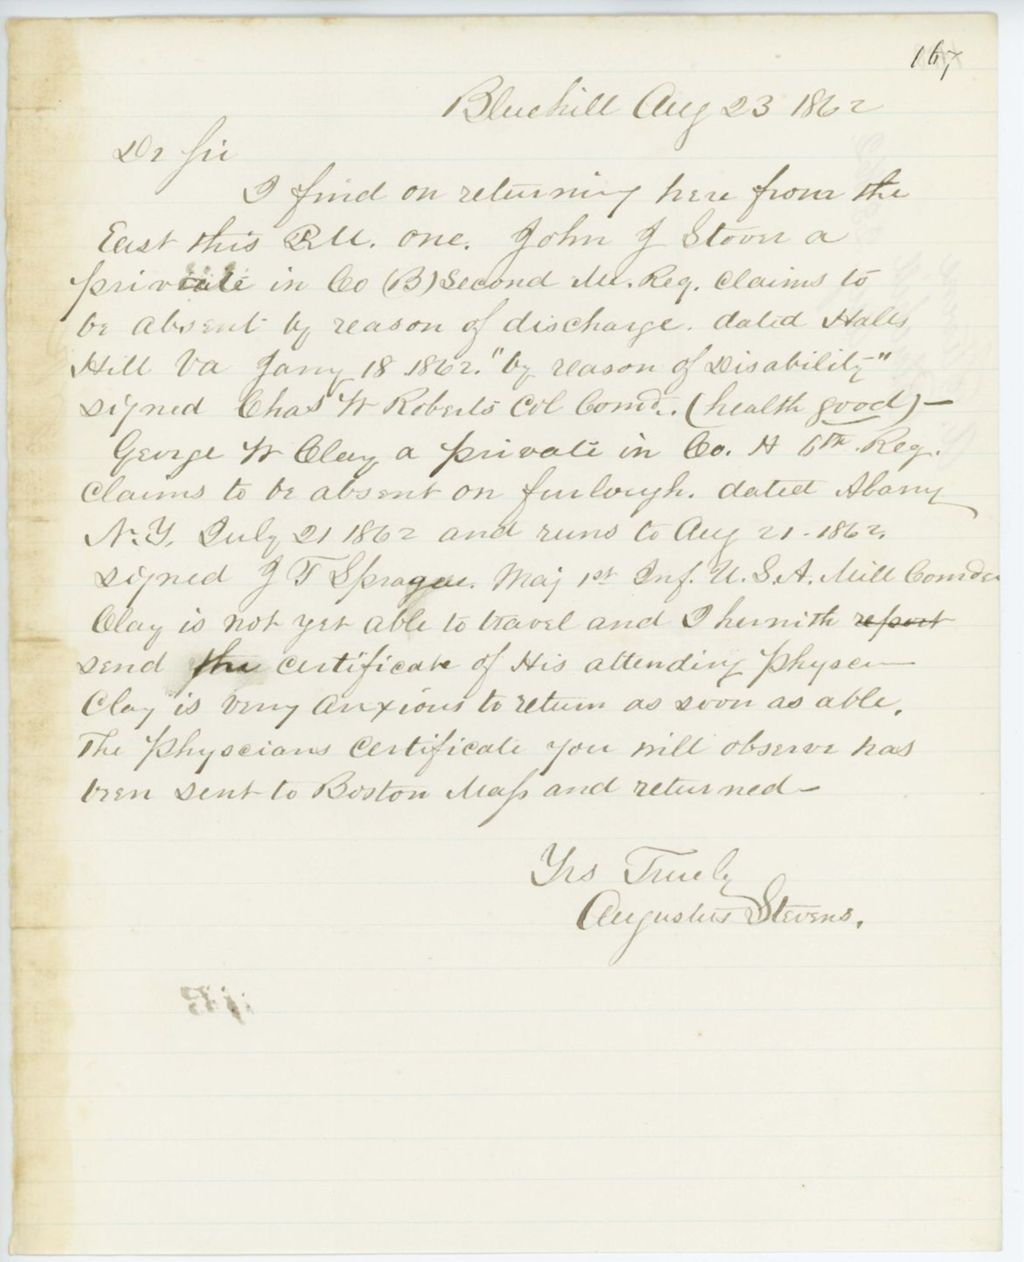 167
Bluehill Aug 23 1862
Dr Sir
I find on returning here from the
East this P.M. one. John J Stover a
private in Co (B) Second Me. Reg. claims to
be absent by reason of discharge. dated Halls
Hill Va Jany 18 1862. "by reason of Disability"
signed Chas W Roberts Col Comd.. (health good) —
George W Clay a private in Co. H 6th. Reg.
claims to be absent on furlough. dated Abany
N.Y. July 21 1862 and runs to Aug 21 - 1862.
signed J T Sprague. Maj 1st Inf. U.S.A. Mill Comdr
Clay is not yet able to travel and I herwith report
send the certificate of His attending Physcin
Clay is very anxious to return as soon as able.
The Physcians Certificate you will observe has
been sent to Boston Mass and returned —
Yrs Truely
Augustus Stevens.